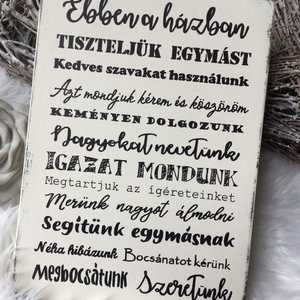 Ebben a házban
TISZTELJÜK EGYMÁST
Kedves szavakat használunk
Azt mondjuk kérem és köszönöm
KEMÉNYEN DOLGOZUNK
Nagyokat nevetünk
IGAZAT MONDUNK
Megtartjuk az ígéreteinket
Merünk nagyot álmodni
Segítünk egymásnak
Néha hibázunk Bocsánatot kérünk
Megbocsátunk Szeretünk